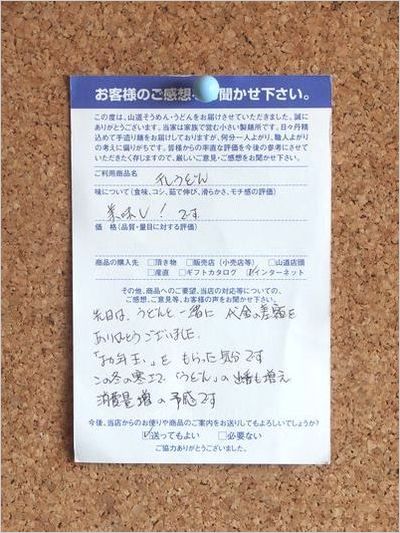 お客様のご感想 聞かせ下さい。
この度は、山道そうめん・うどんをお届けさせていただきました。誠に
ありがとうございます。当家は家族で営む小さい製麺所です。日々丹精
込めて手造り麺をお届けしておりますが、何分一人よがり、職人よがり
の考えに偏りがちです。皆様からの率直な評価を今後の参考にさせて
いただきたく存じますので、厳しいご意見・ご感想をお聞かせ下さい。
ご利用商品名
うどん
味について(食味、コシ、茹で伸び、滑らかさ、モチ感の評価)
美味し!です
価 格(品質・量目に対する評価)
商品の購入先 □頂き物 □販売店(小売店等) □山道店頭
□産直 □ギフトカタログ ☑インターネット
その他、商品へのご要望、当店の対応等についての、
ご感想、ご意見等、お客様の声をお聞かせ下さい。
先日は、うどんと一緒に代金の差額を
ありがとうございました。
「お年玉」をもらった気分です
この冬の寒さで「うどん」の出番も増え
消費量増の予感です
今後、当店からのお便りや商品のご案内をお送りしてもよろしいでしょうか?
☑送ってもよい □必要ない
ご協力ありがとうございました。